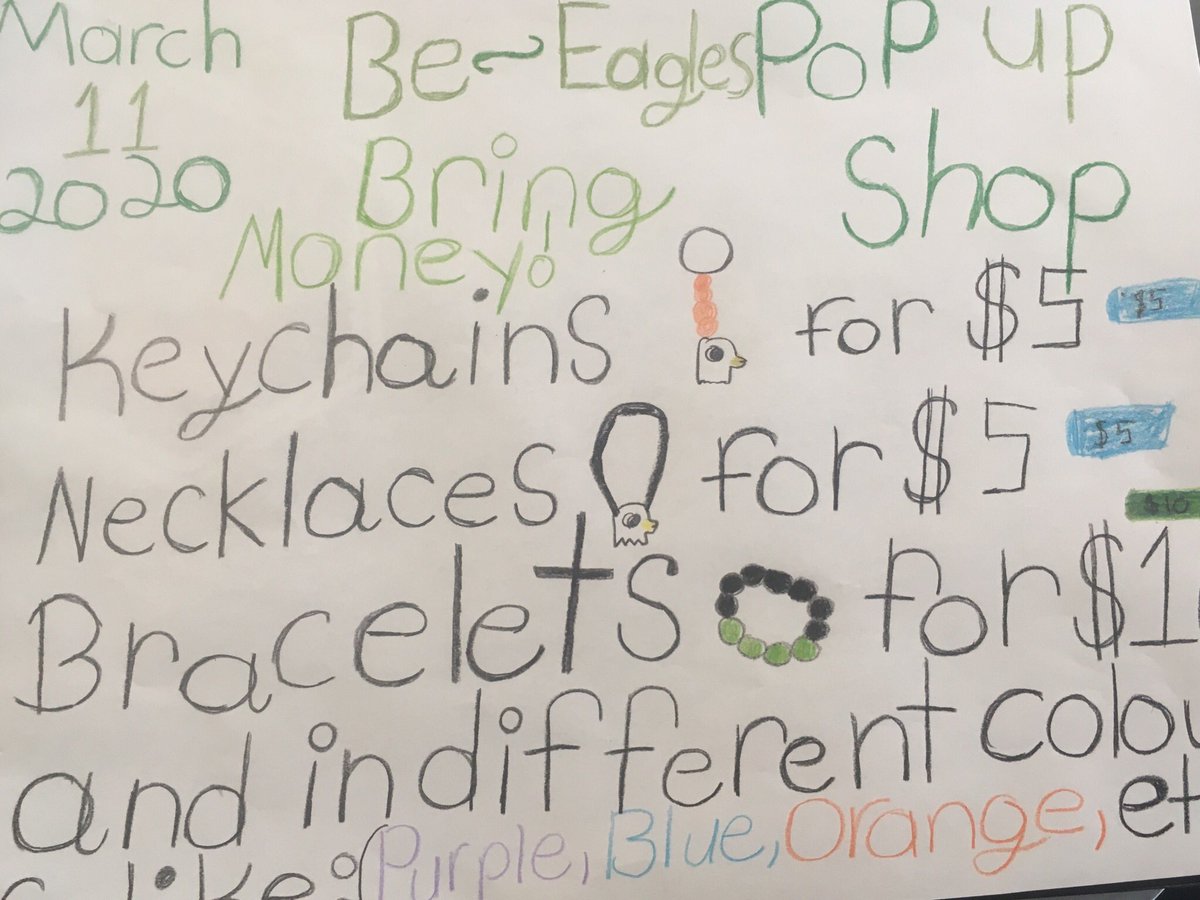 March
11
2020
Be~Eagles Pop up
Shop
Bring
Money!
Keychains for $5 $5
Necklaces for $5 $5
$10
Bracelets for $1
and in different colou
Like: (Purple, Blue, Orange, et